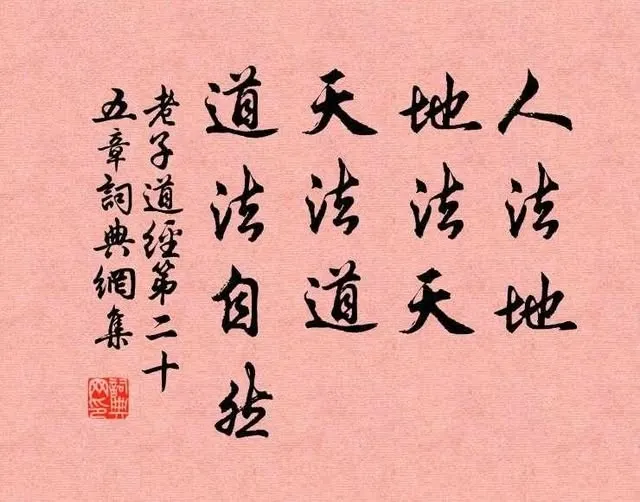 人法地
地法天
天法道
道法自然
老子道經第二十
五章詞典網集
詞典
网印